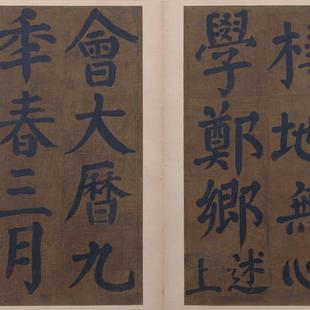 地無心
學鄭鄉述上
會大曆九
秊春三月